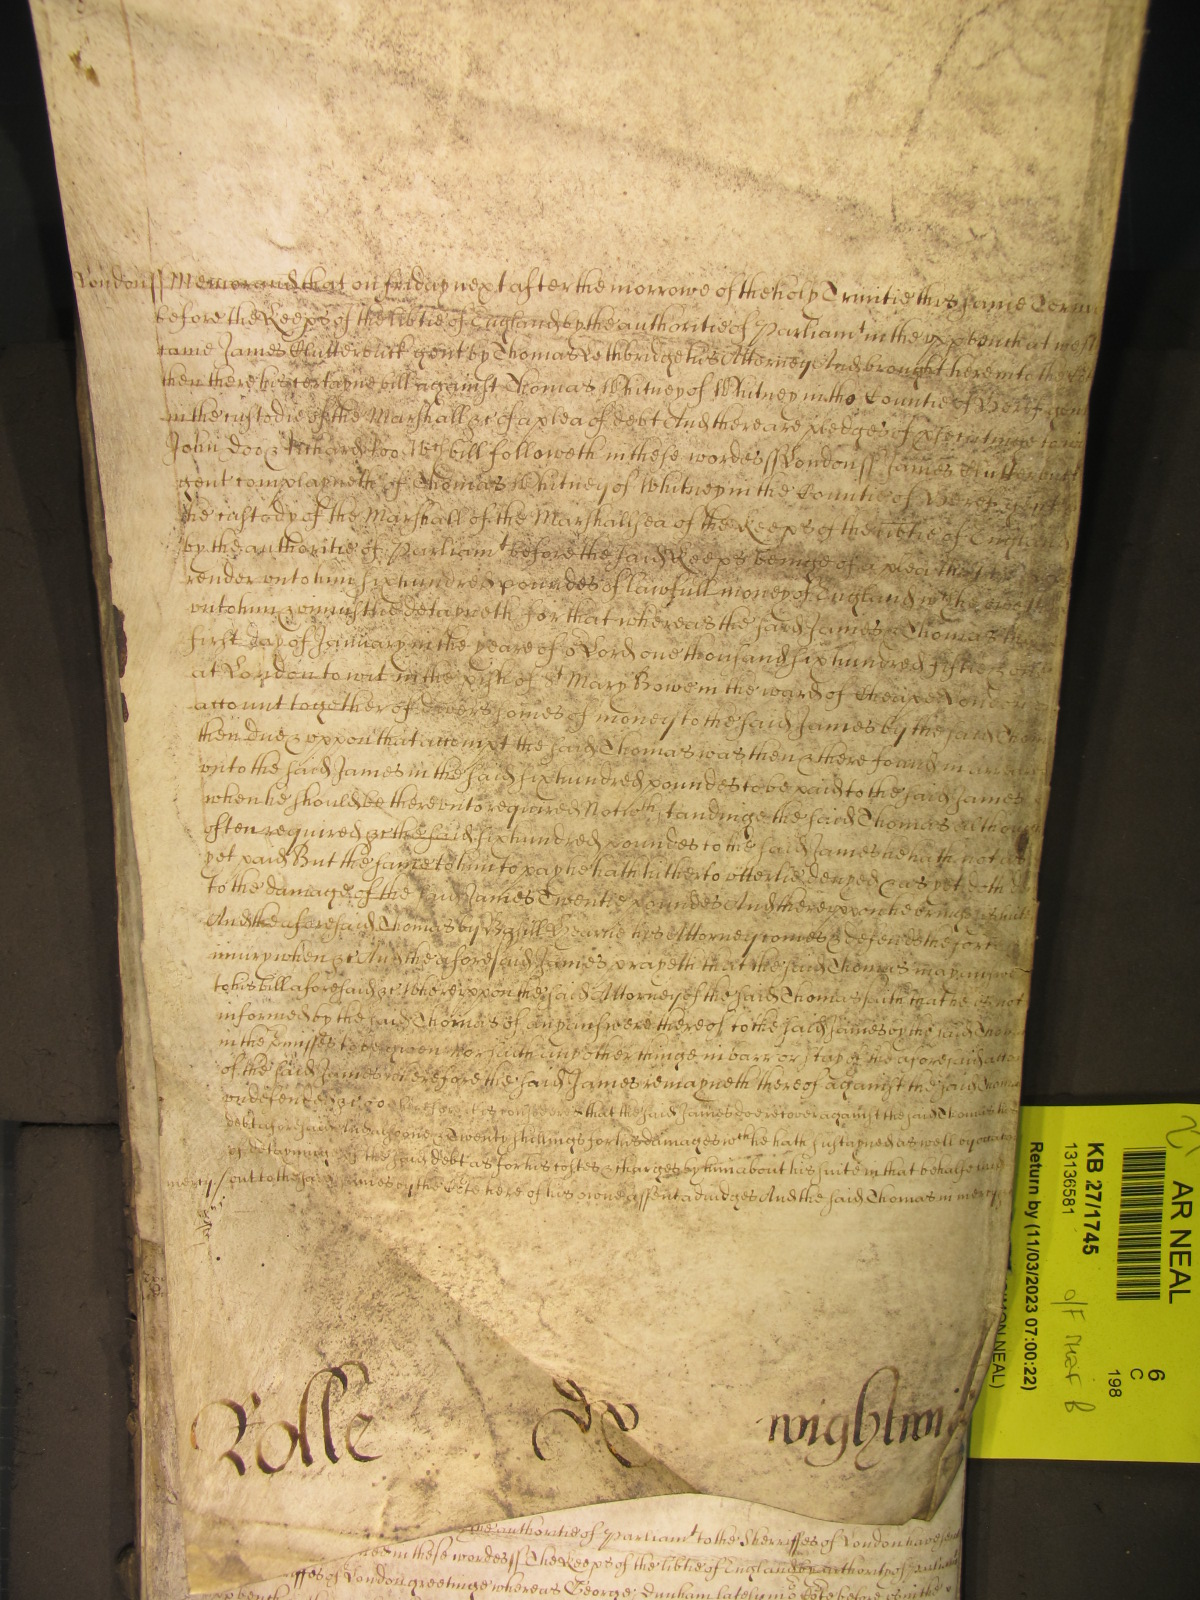 Londonss Memorand that on friday next after the morrowe of the holy Trinitie this same Terme
before the Keeps of the libtie of England by the authoritie of Parliamt in the upp bench at
came James Clutterbuck gent by Thomas Lethbridge his Attorney And brought here into the
then there his certayne bill against Thomas Whitney of Whitney in the Countie of Heref gent
in the custodie of the Marshall &c of a plea of debt And there are pledges of
John Doo & Richard Roo wch bill followeth in these wordes ss London ss James Clutterbuck
gent complayneth of Thomas Whitney of Whitney in the Countie of Heref gent
the custody of the Marshall of the Marshallsea of the Keeps of the libtie of England
by the authoritie of Parliamt before the said Keeps beinge of a plea that
render unto him six hundred poundes of lawfull money of England wch he
unto him & uniustlie detayneth for that whereas the said James & Thomas the
first day of January in the yeare of or Lord one thousand six hundred fiftie &
at London to wit in the pish of St Mary Bowe in the ward of Cheape London
account together of divers somes of money to the said James by the said Thomas
then due & uppon that accompt the said Thomas was then & there found in
unto the said James in the said six hundred poundes to be paid to the said James
when he should be thereunto required Notwthstandinge the said Thomas although
often required &c the said six hundred poundes to the said James he hath not as
yet paid But the same to him to pay he hath hitherto utterlie denyed & as yet doth
to the damage of the said James Twentie poundes And thereuppon he brings
And the aforesaid Thomas by Hearne his Attorney comes & defends the force
iniury when &c And the aforesaid James prayeth that the said Thomas may answere
to his bill aforesaid &c whereuppon the said Attorney of the said Thomas saith that he is not
informed by the said Thomas of any answere thereof to the said James by the said Thomas
in the pmisses to be given nor saith any other thinge in barr or stay of the aforesaid
of the said James wherefore the said James remayneth thereof against the said Thomas
undefended &c Therefore it is considered that the said James recover against the said Thomas his
debt aforesaid And alsoe Twenty shillings for his damages wch he hath sustayned as well
of detayninge of the said debt as for his costes & charges by him about his suite in that behalfe
mercy / out to the said James by the Cort here of his owne assent adiudged And the said Thomas in mercy
Rolle wightwick
the authoritie of Parliamt to the Sherriffes of London have
in these wordes ss The Keeps of the libtie of England by authority of
of London greetinge whereas George Dunham lately in or Cort before
AR NEAL
KB 27/1745
13136581
Return by (11/03/2023 07:00:22)
NEAL)
6
C
198